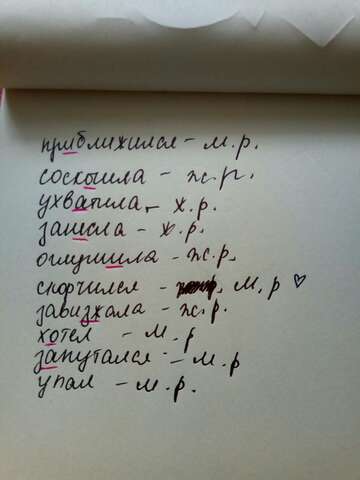 приблихился - м.р.
соскошила - ж.р.
ухватила - ж.р.
зашсла - ж.р.
оглушила - ж.р.
скорчился - м.р
завизжала - ж.р.
хотел - м.р
запутался - м.р
упал - м.р.